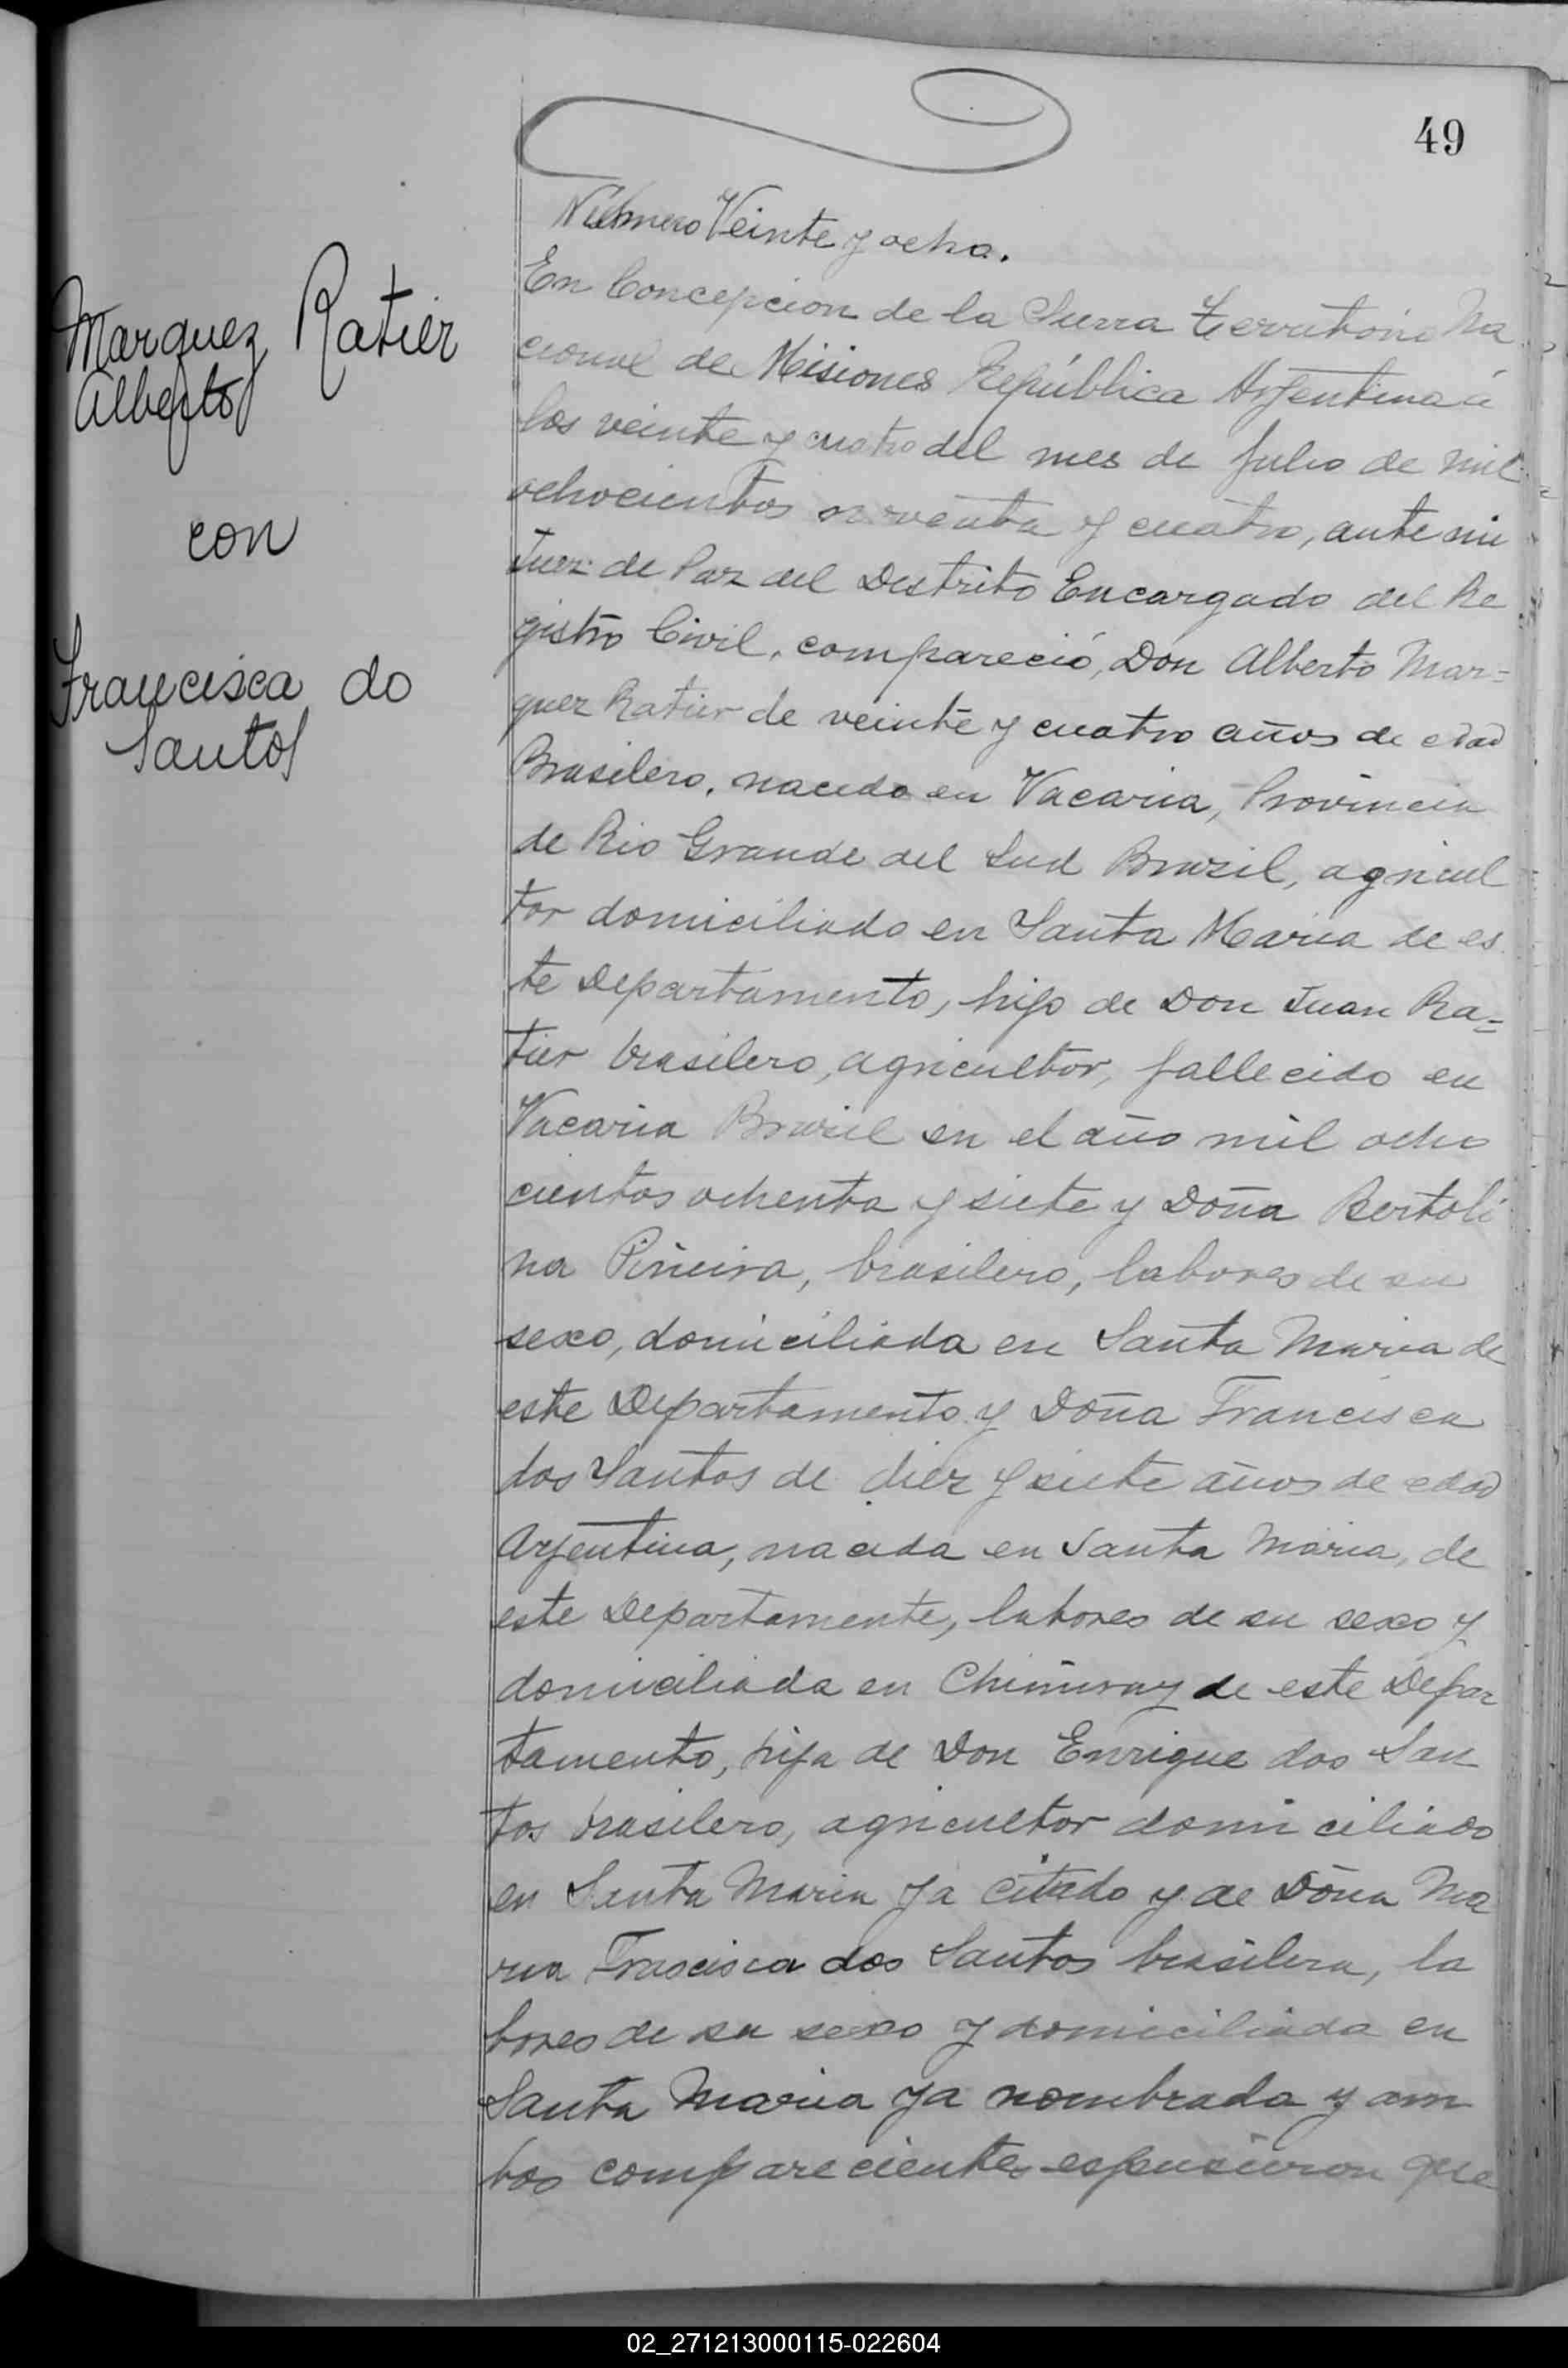 49
Número Veinte y ocho.
Marquez Ratier
Alberto
con
Francisca do
Santos
En Concepcion de la Sierra Territorio Na
cional de Misiones República Arjentina á
los veinte y cuatro del mes de Julio de mil
ochocientos noventa y cuatro, ante mi
Juez de Paz del Destrito Encargado del Re
gistro Civil, compareció, Don Alberto Mar=
quez Ratier de veinte y cuatro años de edad
Brasilero, nacido en Vacaria, Provincia
de Rio Grande del Sud Brazil, agricul
tor domiciliado en Santa Maria de es
te Departamento, hijo de Don Juan Ra=
tier brasilero, agricultor, fallecido en
Vacaria Brazil en el año mil ocho
cientos ochenta y siete y Doña Bertoli
na Piñeira, brasilero, labores de su
sexo, domiciliada en Santa Maria de
este Departamento y Doña Francisca
dos Santos de diez y siete años de edad
Arjentina, nacida en Santa Maria, de
este Departamente, labores de su sexo y
domiciliada en de este Depar
tamento, hija de Don Enrique dos San
tos brasilero, agricultor domiciliado
en Santa Maria ya citado y de Doña Ma
ria Francisca dos Santos brasilera, la
bores de su sexo y domiciliada en
Santa Maria ya nombrada y am
bos comparecientes espusieron que
02_271213000115-022604